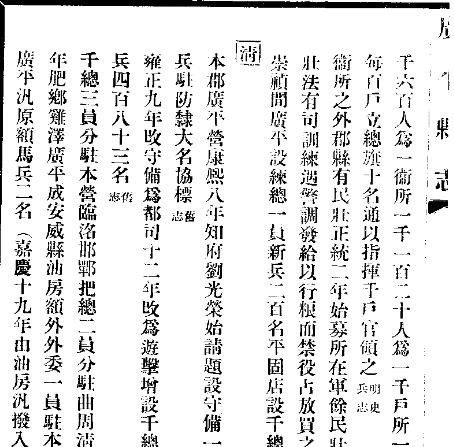 廣平縣志
千六百人爲一衞所一千一百二十人爲一千戶所一
每百戶立總旗十名通以指揮千戶官領之 明史兵志
衞所之外郡縣有民壯正統二年始募所在軍餘民壯
壯法有司訓練遇警調發給以行糧而禁役占放買之
崇禎間廣平設練總一員新兵二百名平固店設千總
淸
本郡廣平營康熙八年知府劉光榮始請題設守備一
兵駐防隸大名協標 舊志
雍正九年改守備爲都司十二年改爲遊擊增設千總
兵四百八十三名 舊志
千總三員分駐本營臨洺邯鄲把總二員分駐曲周淸
年肥鄕雞澤廣平成安威縣油房額外外委一員駐本
廣平汛原額馬兵二名（嘉慶十九年由油房汛撥入